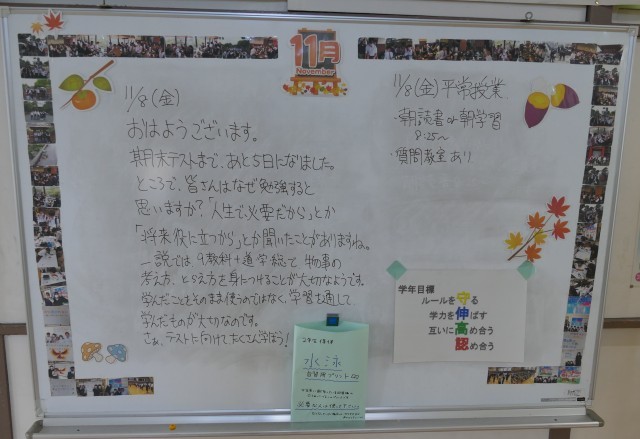 11月
November
11/8(金)
おはようございます。
期末テストまで、あと5日になりました。
ところで、皆さんはなぜ勉強すると
思いますか?「人生で必要だから」とか
「将来役に立つから」とか聞いたことがありますね。
一説では、9教科+道・学・総で、物事の
考え方、とらえ方を身につけることが大切なようです。
学んだことをそのまま使うのではなく、学習を通して
学んだものが大切なのです。
さぁ、テストに向けてたくさん学ぼう!
11/8(金)平常授業
・朝読書or朝学習
8:25〜
・質問教室あり
学年目標
ルールを守る
学力を伸ばす
互いに高め合う
認め合う
水泳
自習用プリント